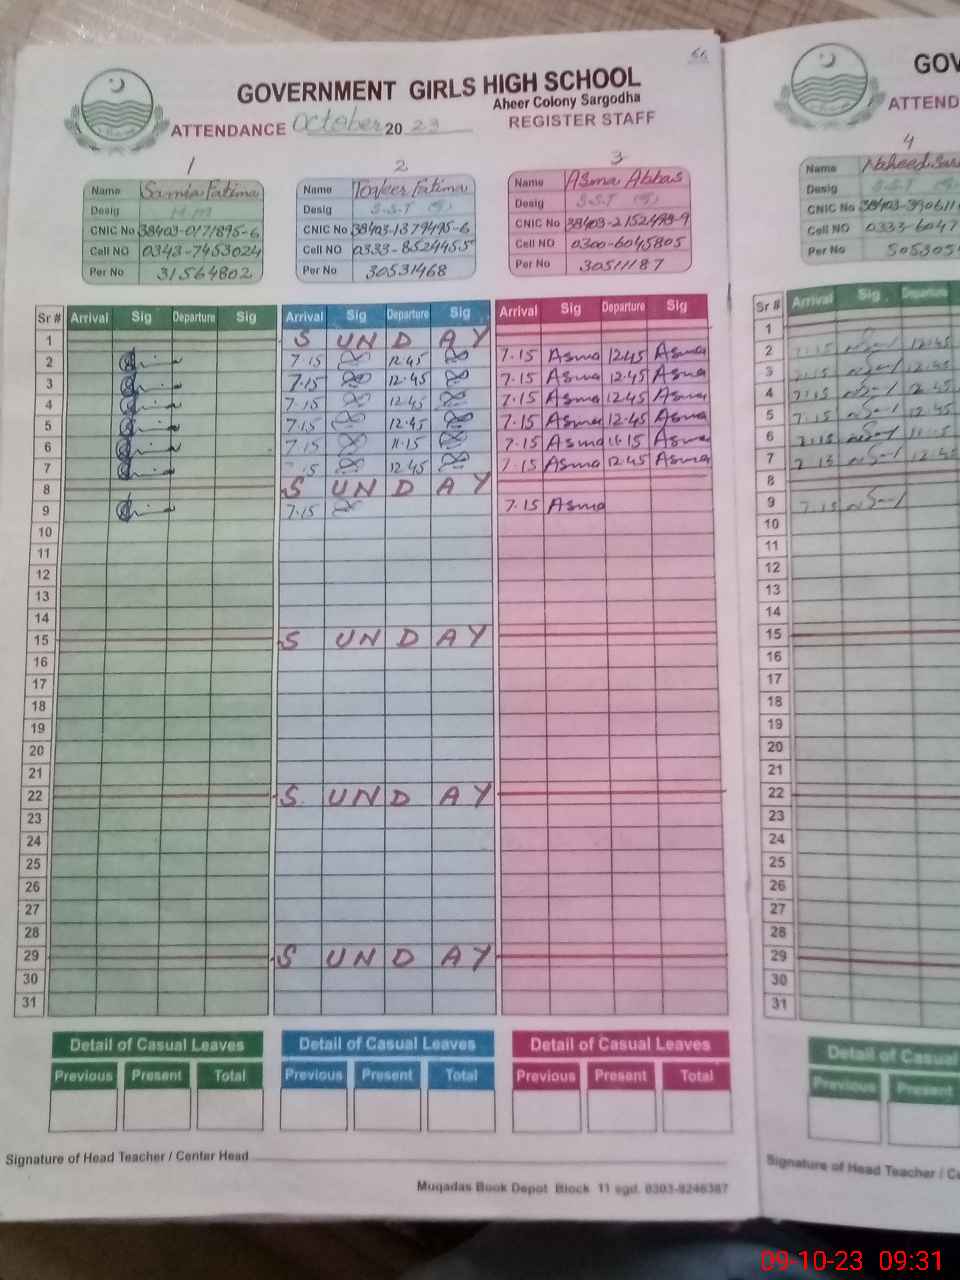 66
GOVERNMENT GIRLS HIGH SCHOOL
Aheer Colony Sargodha
ATTENDANCE October 2023 REGISTER STAFF
1 2 3
Name Samia Fatima Name Toqeer Fatima Name Asma Abbas
Desig H.M Desig S.S.T Desig S.S.T
CNIC No 38403-0171895-6 CNIC No 38403-1379495-6 CNIC No 38403-2152498-9
Cell NO 0343-7453024 Cell NO 0333-8524455 Cell NO 0300-6045805
Per No 31564802 Per No 30531468 Per No 30511187
Sr # Arrival Sig Departure Sig Arrival Sig Departure Sig Arrival Sig Departure Sig
1 S UN D AY
2 7.15 12.45 7.15 Asma 12.45 Asma
3 7.15 12.45 7.15 Asma 12.45 Asma
4 7.15 12.45 7.15 Asma 12.45 Asma
5 7.15 12.45 7.15 Asma 12.45 Asma
6 7.15 11.15 7.15 Asma 11.15 Asma
7 15 12.45 7.15 Asma 12.45 Asma
8 S UN D AY
9 7.15 7.15 Asma
10
11
12
13
14
15 S UN D AY
16
17
18
19
20
21
22 S UN D AY
23
24
25
26
27
28
29 S UN D AY
30
31
Detail of Casual Leaves Detail of Casual Leaves Detail of Casual Leaves
Previous Present Total Previous Present Total Previous Present Total
Signature of Head Teacher / Centar Head
Muqadas Book Depot Block 11 sgd. 0303-9246387
GOV
ATTEND
4
Name Naheed
Desig S.S.T
CNIC No 38403-390611
Cell NO 0333-6047
Per No 505305
Sr # Arrival Sig Departure
1
2 7.15 12.45
3 7.15 12.45
4 7.15 12.45
5 7.15 12.45
6 7.15 11.15
7 7.15 12.45
8
9 7.15
10
11
12
13
14
15
16
17
18
19
20
21
22
23
24
25
26
27
28
29
30
31
Detail of Casual
Previous Present
Signature of Head Teacher / Ce
09-10-23 09:31